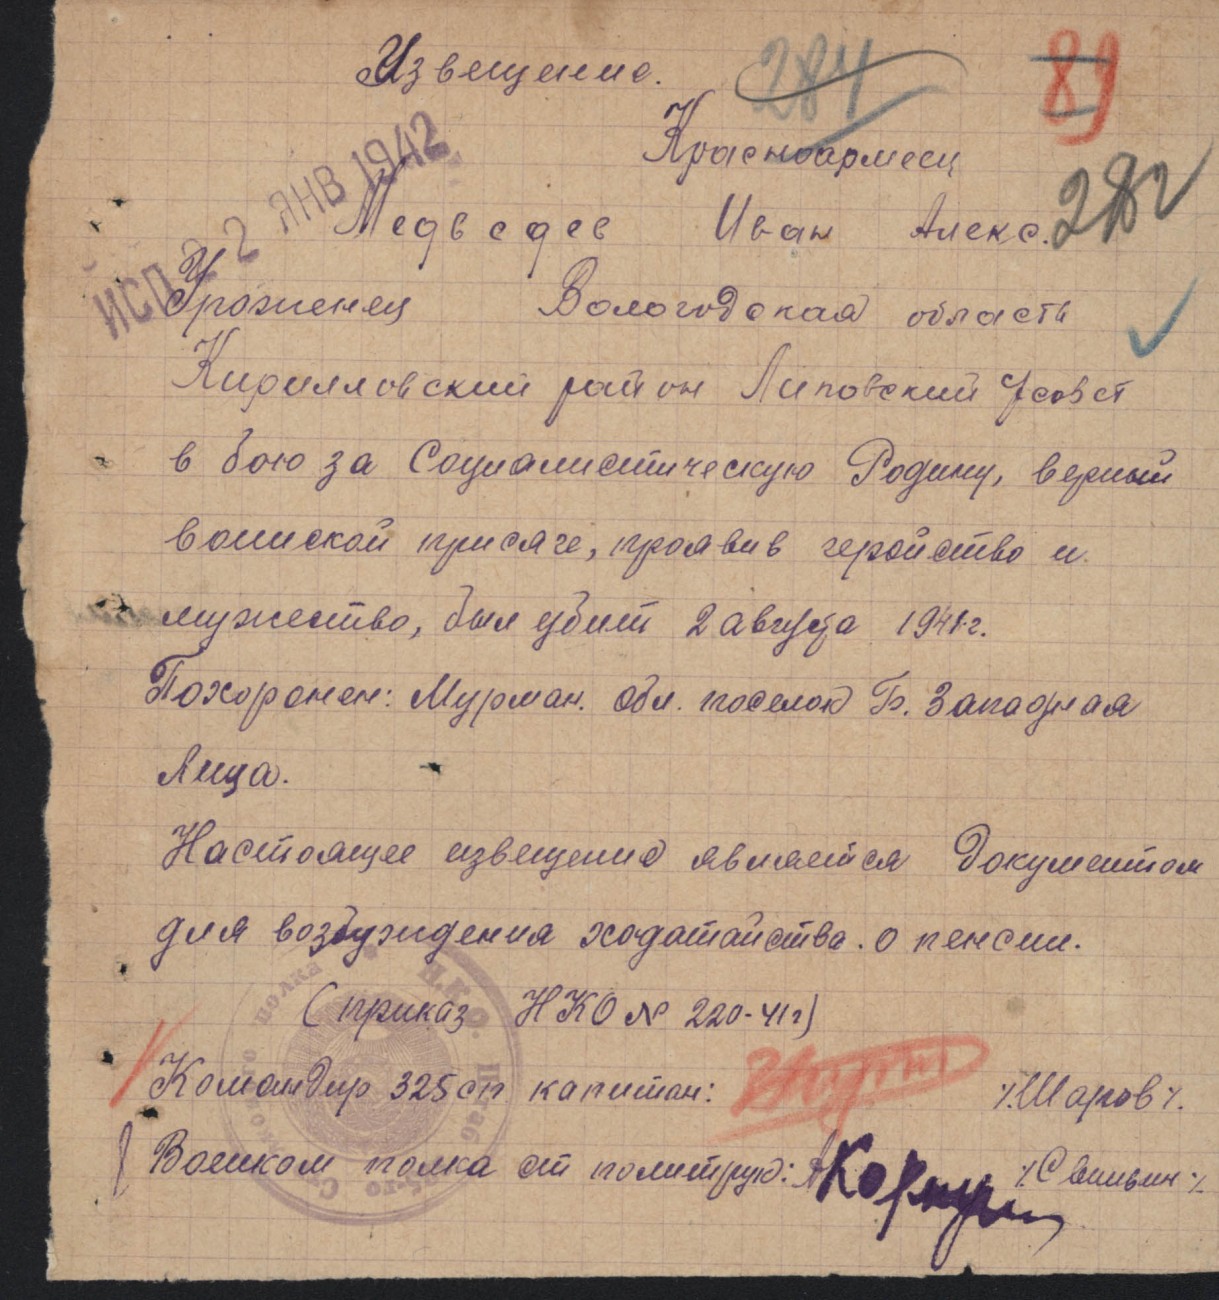 Извещение.
284
89
Красноармеец
282
Медведев Иван Алекс.
ИСП. 22 ЯНВ 1942
Уроженец Вологодская область
Кирилловский район Липовский с/совет
в бою за Социалистическую Родину, верный
воинской присяге, проявив геройство и
мужество, был убит 2 августа 1941 г.
Похоронен: Мурман. обл. поселок Б. Западная
Лица.
Настоящее извещение является документом
для возбуждения ходатайства о пенсии.
(приказ НКО № 220-41г)
Командир 325 сп капитан: /Шаров/.
Военком полка ст политрук: /Свиньин/.
Н.К.О. Штаб 325-го Стрелкового полка